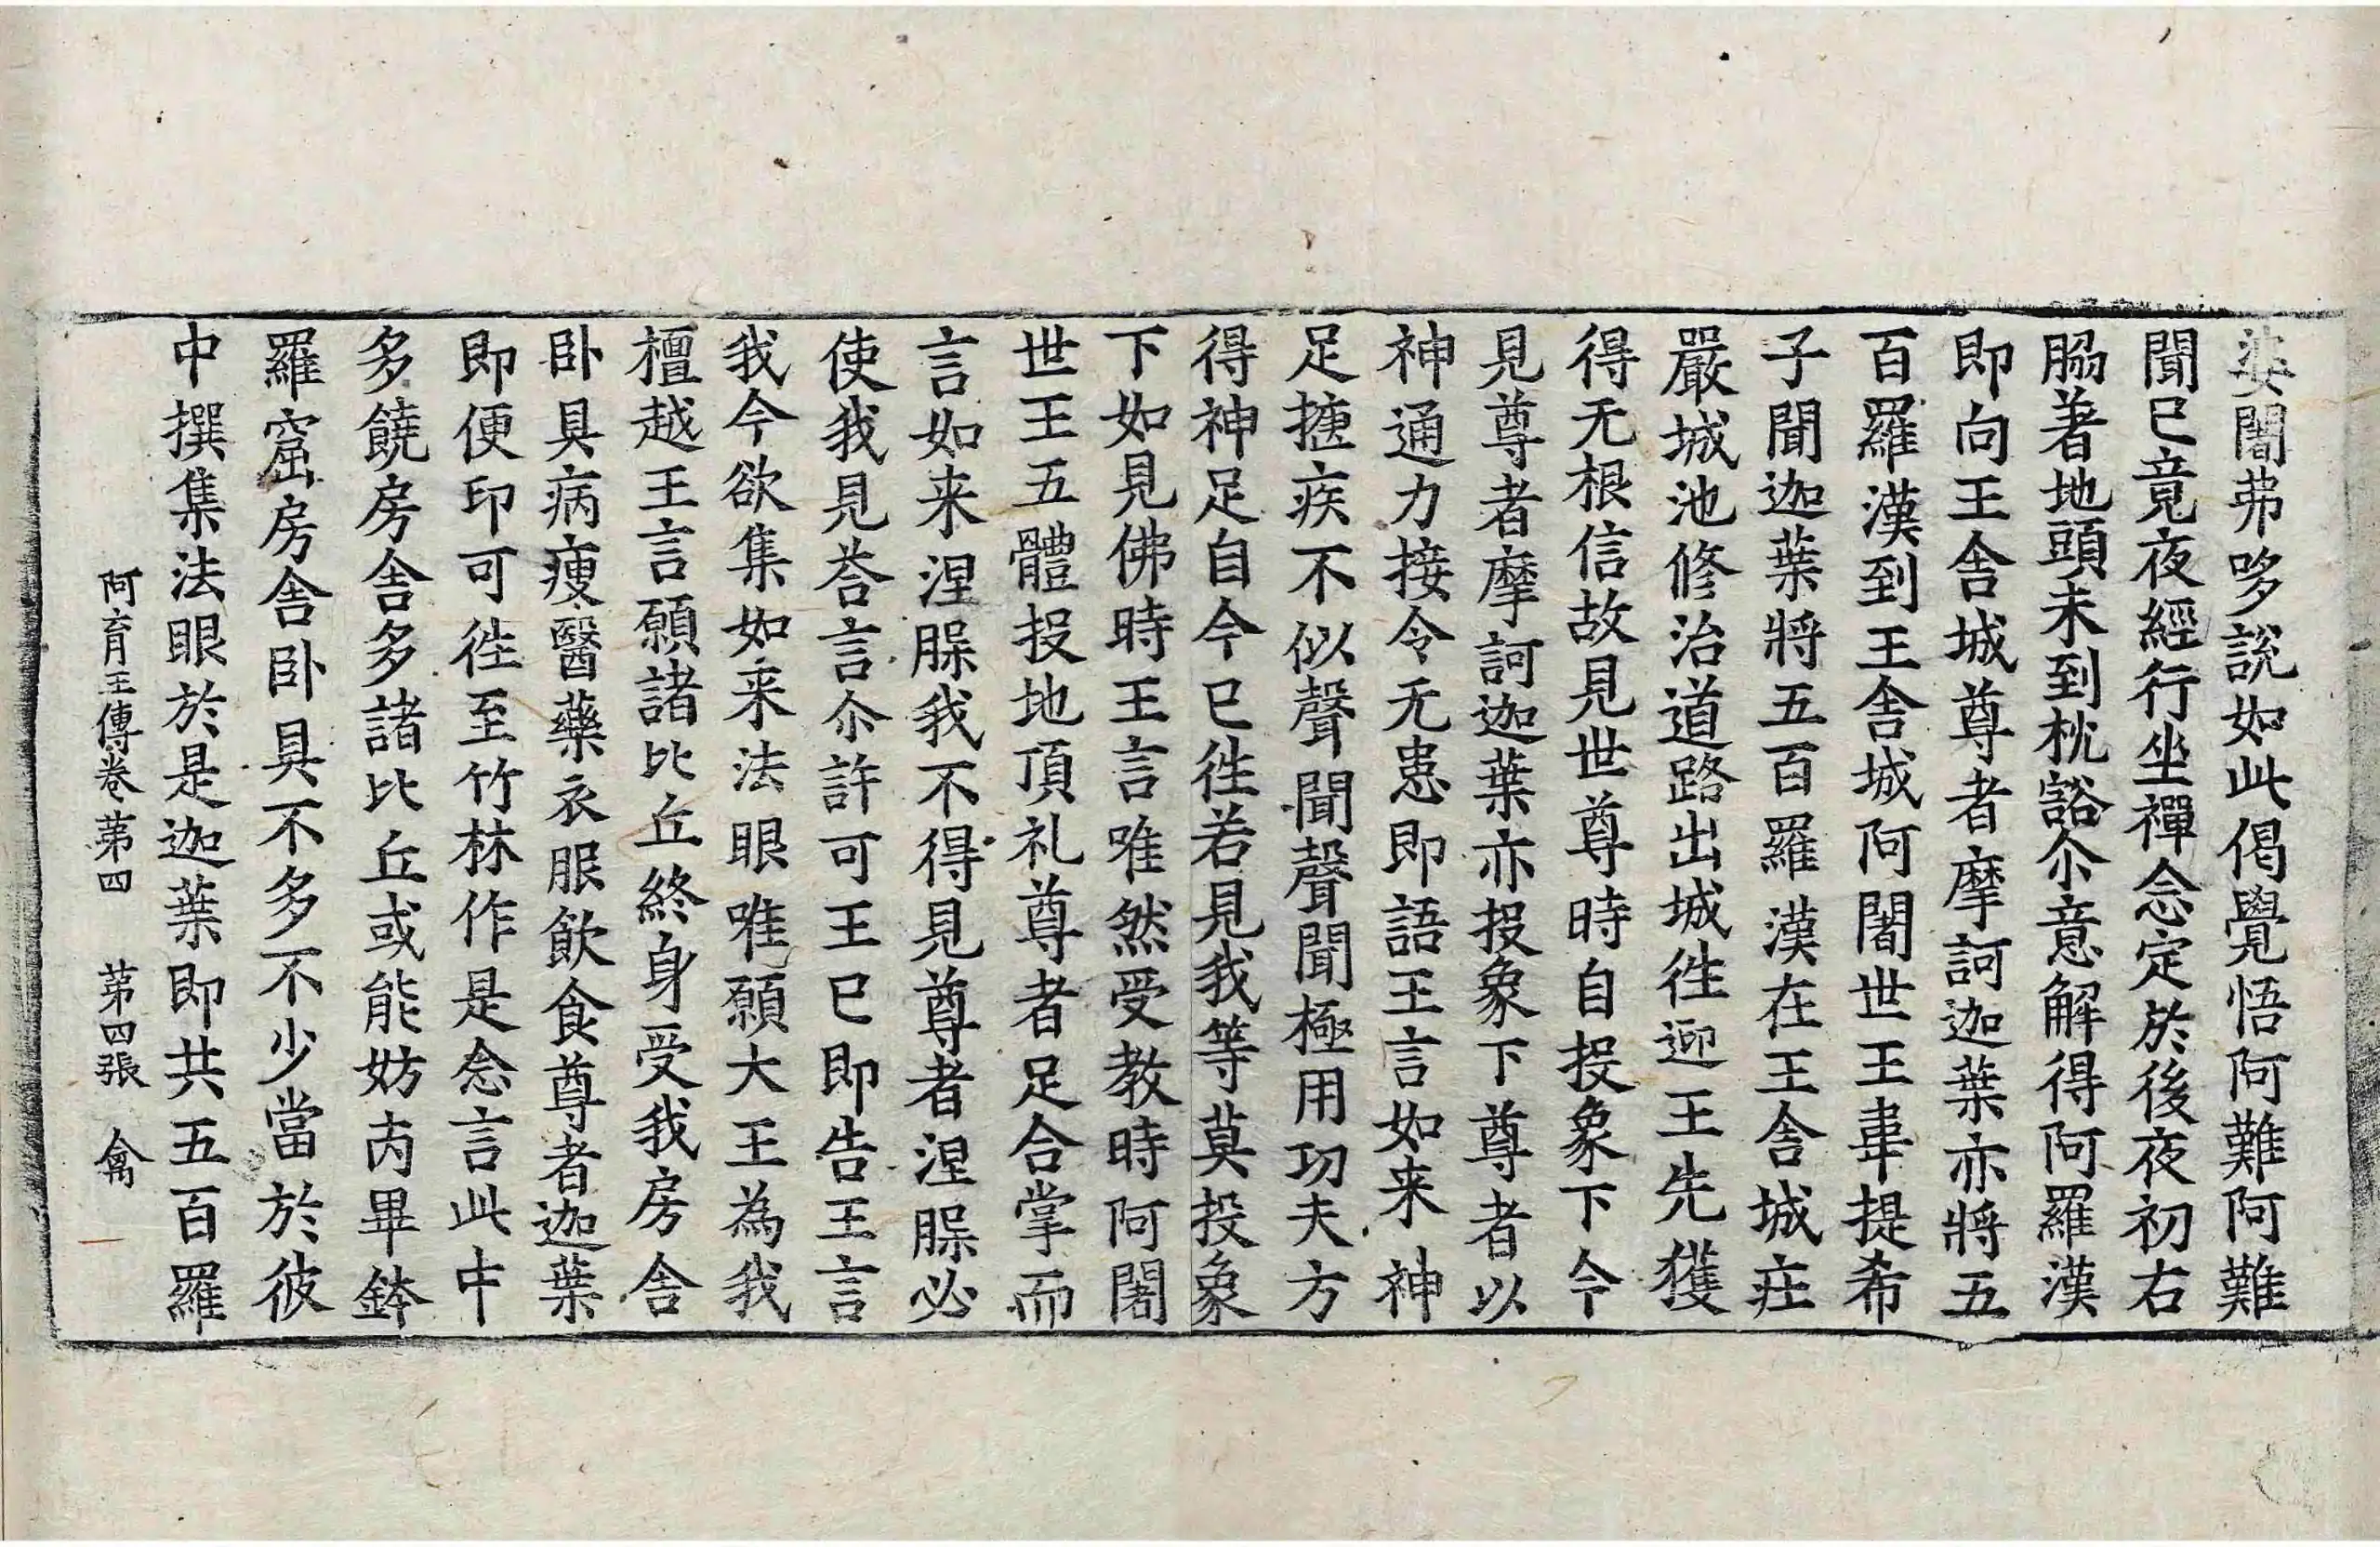 婆闍弗哆說如此偈覺悟阿難阿難
聞已竟夜經行坐禪念定於後夜初右
脇著地頭未到枕豁尒意解得阿羅漢
即向王舍城尊者摩訶迦葉亦將五
百羅漢到王舍城阿闍世王韋提希
子聞迦葉將五百羅漢在王舍城莊
嚴城池修治道路出城徃迎王先獲
得无根信故見世尊時自投象下今
見尊者摩訶迦葉亦投象下尊者以
神通力接令无患即語王言如来神
足搪疾不似聲聞聲聞極用功夫方
得神足自今已徃若見我等莫投象
下如見佛時王言唯然受教時阿闍
世王五體投地頂礼尊者足合掌而
言如来涅槃我不得見尊者涅槃必
使我見荅言尒許可王已即告王言
我今欲集如来法眼唯願大王為我
檀越王言願諸比丘終身受我房舍
卧具病瘦醫藥衣服飲食尊者迦葉
即便印可徃至竹林作是念言此中
多饒房舍多諸比丘或能妨㓋畢鉢
羅窟房舍卧具不多不少當於彼
中撰集法眼於是迦葉即共五百羅
阿育王傳卷第四 第四張 禽